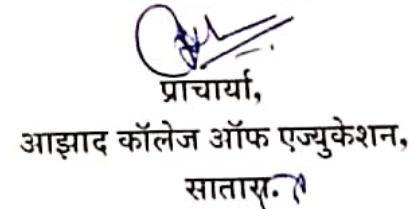 प्राचार्या,
आझाद कॉलेज ऑफ एज्युकेशन,
सातारा.